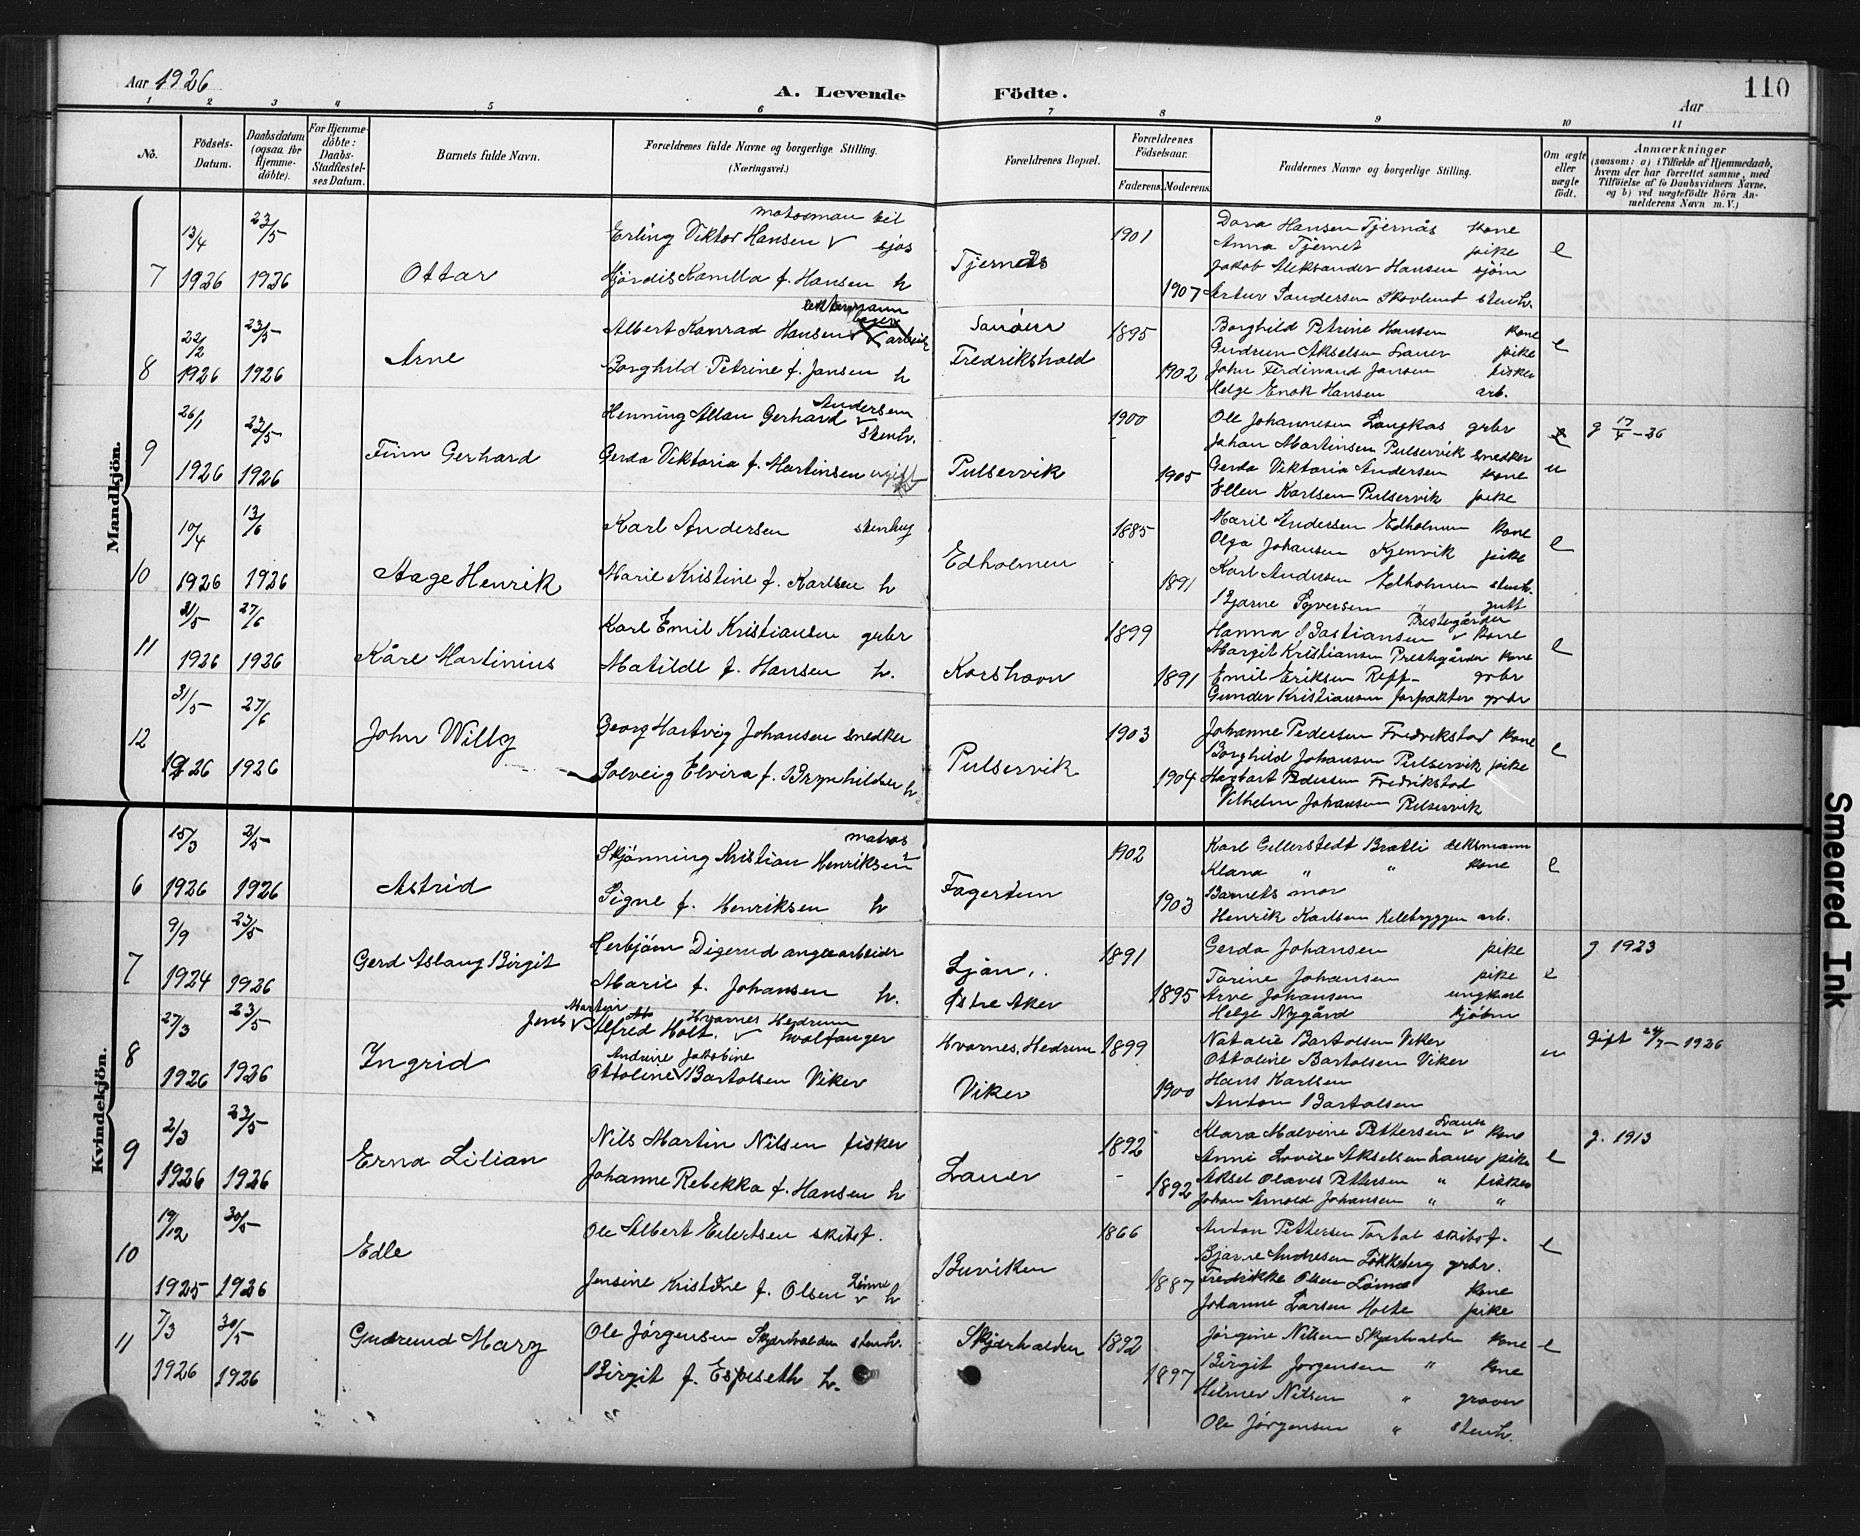 Aar 1926
A. Levende Födte.
Aar
110
1 2 3 4 5 6 7 8 9 10 11
No.
Födsels-Datum.
Daabsdatum (ogsaa for Hjemme-döbte).
For Hjemme-döbte: Daabs-Stadfæstel-ses Datum.
Barnets fulde Navn.
Forældrenes fulde Navne og borgerlige Stilling.
(Næringsvei.)
Forældrenes Bopæl.
Forældrenes Födselsaar.
Faderens. Moderens.
Faddernes Navne og borgerlige Stilling.
Om ægte eller uægte födt.
Anmærkninger
(saasom: a) i Tilfælde af Hjemmedaab,
hvem der har forrettet samme, med
Tilföielse af to Daabsvidners Navne,
og b) ved uægtefödte Börn An-
melderens Navn m. V.)
Mandkjön.
7 13/4 1926 23/5 1926 Ottar
Erling Viktor Hansen
Hjördis Kamilla f. Hansen h
Tjernes 1901 1907
Dora Hansen Tjernås kone
Anna Tjernet pike
Jakob Aleksander Hansen sjöm
Artur Sandersen Skovlund stenh.
e
8 22/2 1926 23/5 1926 Arne
Albert Konrad Hansen
Borghild Petrine f. Jansen h
Fredrikshald 1895 1902
Borghild Petrine Hansen kone
Gudrun Akselsen Lauer pike
John Ferdinand Jansen fisker
Helge Enok Hansen arb.
e
9 26/1 1926 23/5 1926 Finn Gerhard
Henning Allan Gerhard Andersen stenh.
Gerda Viktoria f. Martinsen ugift
Pulservik 1900 1905
Ole Johannesen Langkås grbr
Johan Martinsen Pulservik snedker
Gerda Viktoria Andersen kone
Ellen Karlsen Pulservik pike
u
g 17/4 - 26
10 10/4 1926 13/6 1926 Aage Henrik
Karl Andersen stenhug
Marie Kristine f. Karlsen h
Edholmen 1885 1891
Marie Andersen Edholmen kone
Olga Johansen Kjenvik pike
Karl Andersen Edholmen stenh.
Bjarne Syversen " gutt
e
11 31/5 1926 27/6 1926 Kåre Martinius
Karl Emil Kristiansen grbr
Matilde f. Hansen h.
Korshavn 1899 1891
Hanna Bastiansen Prestegården kone
Margit Kristiansen Prestegården kone
Emil Eriksen Reff- grbr
Gunder Kristiansen forpakter grbr
e
12 31/5 1926 27/6 1926 John Willy
Georg Hartvig Johansen snedker
Solveig Elvira f. Brynhildsen h
Pulservik 1903 1904
Johanne Pedersen Fredrikstad kone
Borghild Johansen Pulservik pike
Hagbart Pedersen Fredrikstad
Vilhelm Johansen Pulservik
e
Kvindekjön.
6 15/3 1926 2/5 1926 Astrid
Skjönning Kristian Henriksen matros
Signe f. Henriksen h
Fagertun 1902 1903
Karl Gellerstedt Bratli deksmann
Klara " " kone
Barnets mor
Henrik Karlsen Kilebryggen arb.
e
7 9/9 1924 23/5 1926 Gerd Aslaug Birgit
Herbjörn Digerud angesarbeider
Marie f. Johansen h.
Ljan, Østre Aker 1891 1895
Gerda Johansen pike
Torine Johansen pike
Arve Johansen ungkarl
Helge Nygård kjöbm
e
g. 1923
8 27/3 1926 23/5 1926 Ingrid
Jens Martin Alfred Holt. Hvarnes Hedrum hvalfanger
Andrine Jakobine
Ottoline Bartolsen Viker
Hvarnes, Hedrum
Viker 1899 1900
Natalie Bartolsen Viker
Ottoline Bartolsen Viker
Hans Karlsen
Anton Bartolsen
u
Gift 24/7 - 1926
9 2/3 1926 23/5 1926 Erna Lilian
Nils Martin Nilsen fisker
Johanne Rebekka f. Hansen h
Lauer 1892 1892
Klara Malvine Pettersen Lauer kone
Anni Lovise Akselsen Lauer pike
Aksel Olaves Pettersen " fisker
Johan Arnold Johansen " "
e
g. 1913
10 19/12 1925 30/5 1926 Edle
Ole Albert Eilertsen skibsf.
Jensine Kristine f. Olsen Lönne h
Buviken 1866 1887
Anton Pettersen Torbal skibsf.
Bjarne Andresen Lökkeberg grbr.
Fredrikke Olsen Lönne kone
Johanne Larsen Holte pike
e
11 7/3 1926 30/5 1926 Gudrund Mary
Ole Jörgensen Skjærhalden stenh.
Birgit f. Espeseth h.
Skjærhalden 1892 1897
Jörgine Nilsen Skjærhalden kone
Birgit Jörgensen " kone
Hilmer Nilsen " graver
Ole Jörgensen " stenh.
e
Smeared Ink